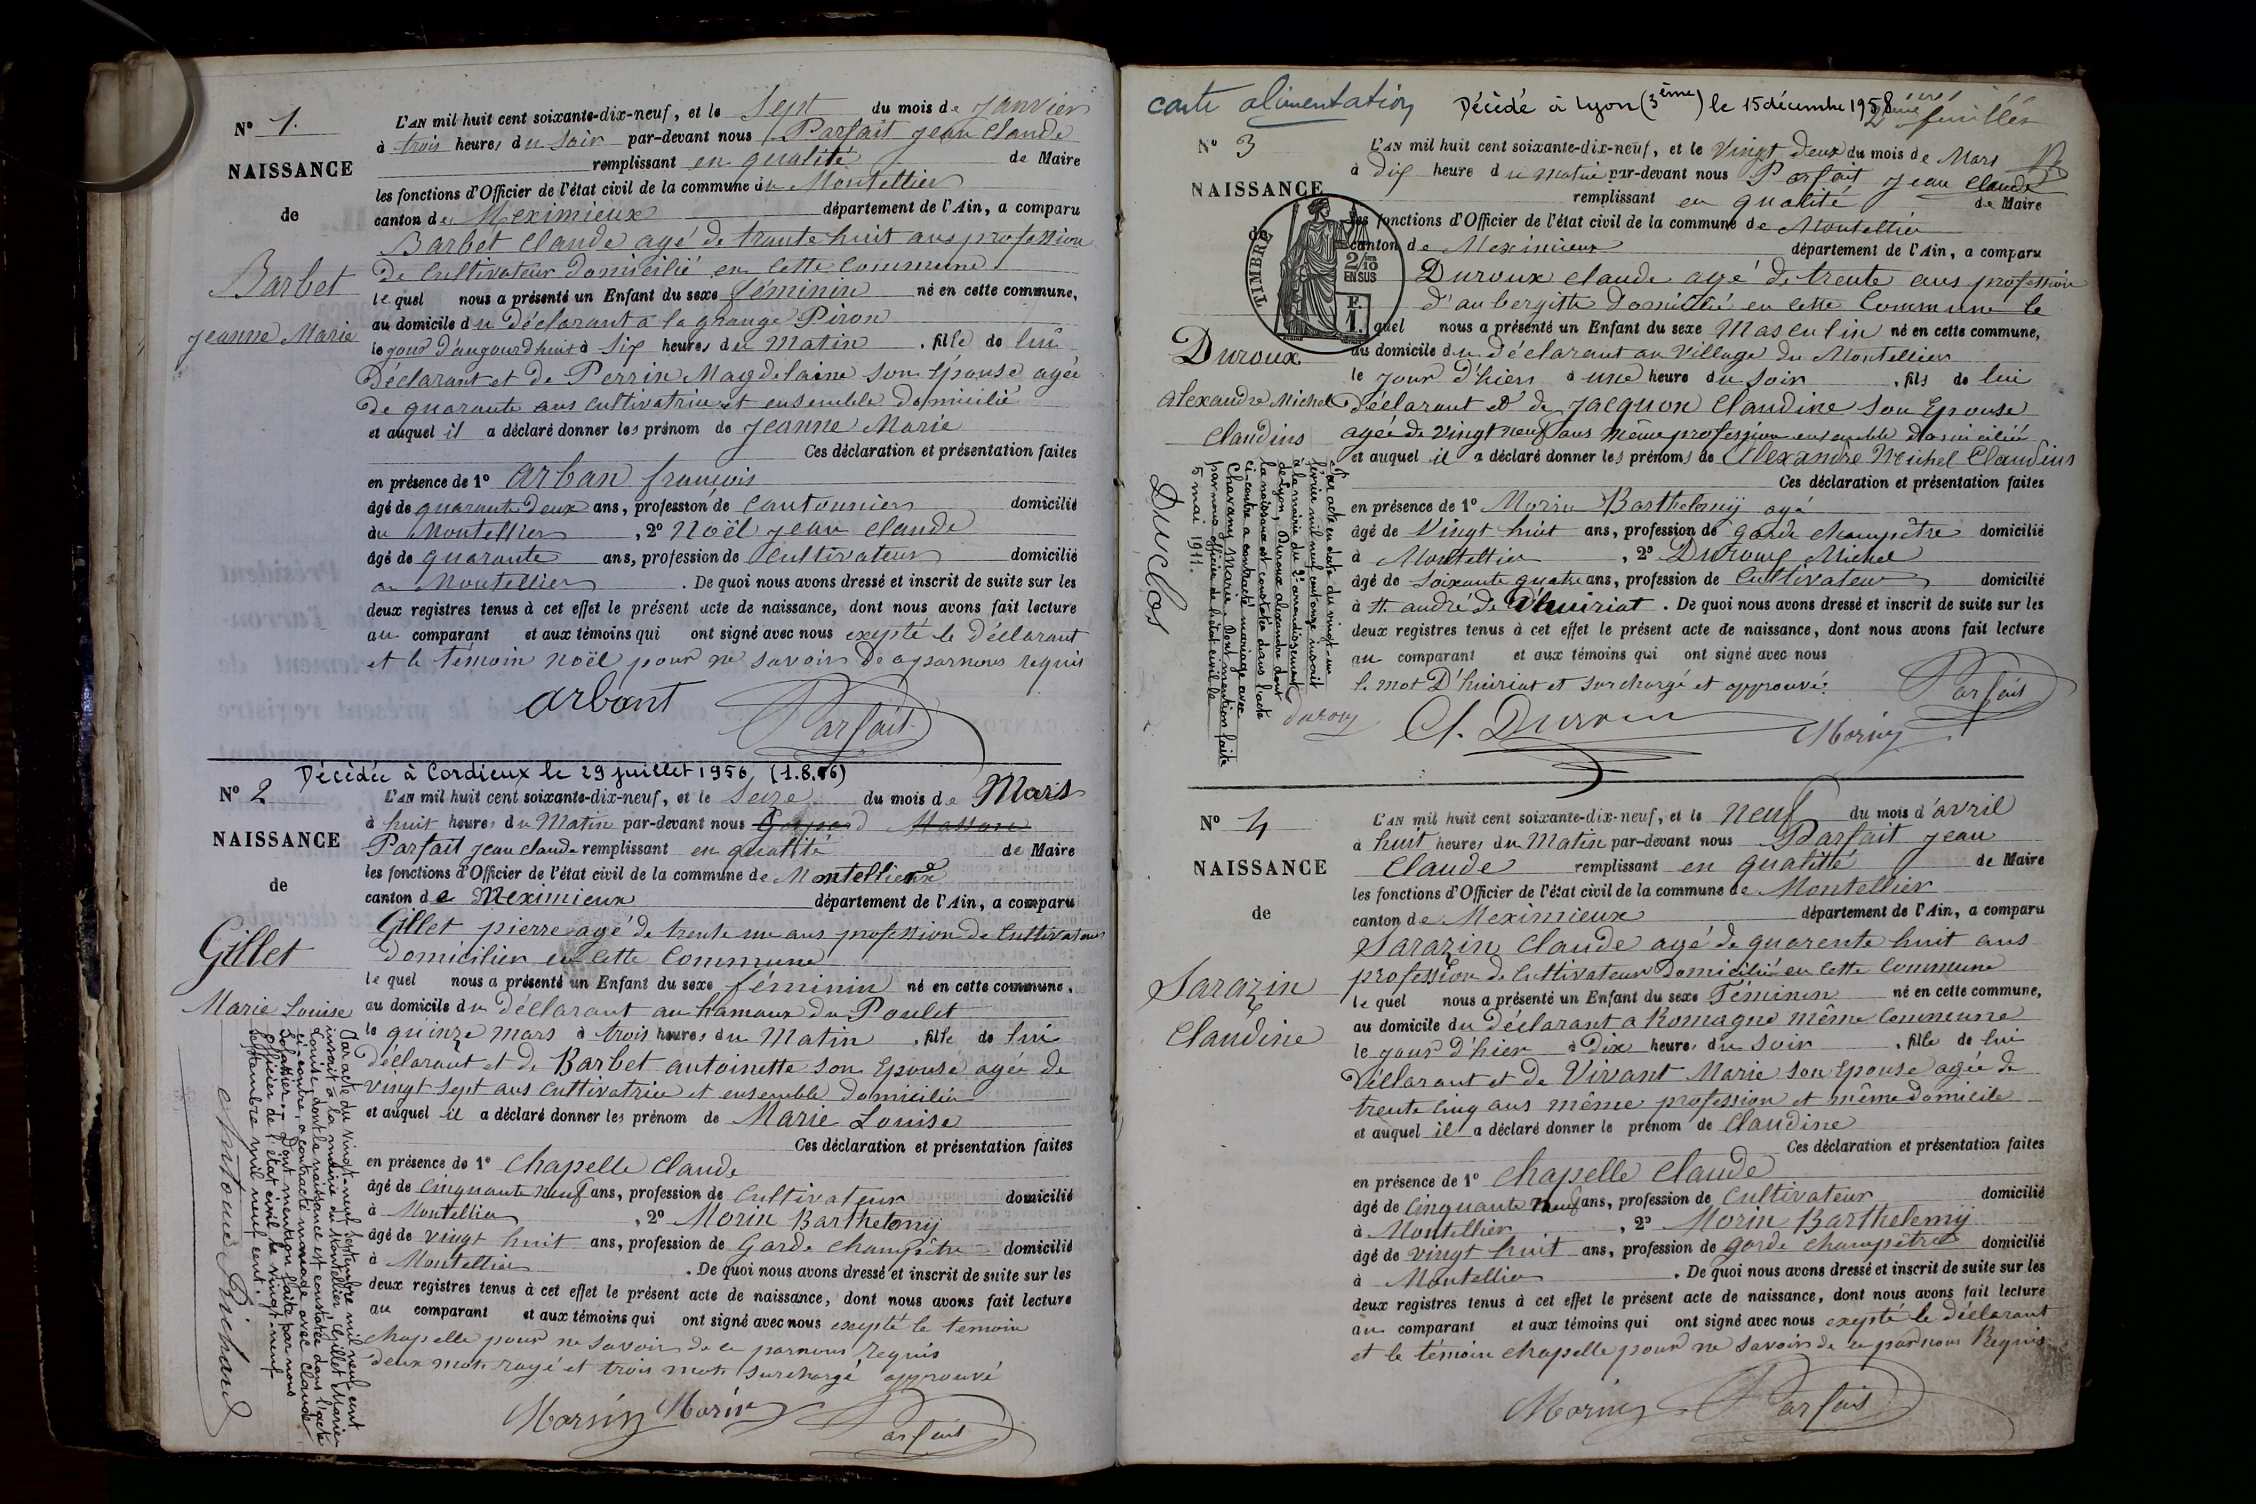 N° 1.
NAISSANCE
de
Barbet
Jeanne Marie
L'AN mil huit cent soixante-dix-neuf, et le Sept du mois de Janvier
à trois heures du Soir par-devant nous Parfait Jean Claude
remplissant en qualité de Maire
les fonctions d'Officier de l'état civil de la commune du Montellier
canton de Meximieux département de l'Ain, a comparu
Barbet Claude agé de trente huit ans profession
De Cultivateur domicilié en Cette Commune
le quel nous a présenté un Enfant du sexe féminin né en cette commune,
au domicile du Déclarant à la grange Piron
le jour d'aujourd'huit à six heures du Matin , fille de lui
Déclarant et de Perrin Magdelaine son Epouse agée
De quarante ans Cultivatrice et ensemble domicilié
et auquel il a déclaré donner les prénom de Jeanne Marie
Ces déclaration et présentation faites
en présence de 1° Arban françois
âgé de quarante deux ans, profession de Cantonnier domicilié
au Montellier , 2° Noël Jean Claude
âgé de quarante ans, profession de Cultivateur domicilié
au Montellier . De quoi nous avons dressé et inscrit de suite sur les
deux registres tenus à cet effet le présent acte de naissance, dont nous avons fait lecture
au comparant et aux témoins qui ont signé avec nous excepté le Déclarant
et le témoin Noël pour ne savoir De a parnous requis
Arbant Parfait
Décédée à Cordieux le 29 juillet 1956 (1.8.56)
N° 2
NAISSANCE
de
Gillet
Marie Louise
L'AN mil huit cent soixante-dix-neuf, et le Seize du mois de Mars
à huit heures du Matin par-devant nous Gaspard Masson
Parfait Jean Claude remplissant en qualité de Maire
les fonctions d'Officier de l'état civil de la commune de Montellier
canton de Meximieux département de l'Ain, a comparu
Gillet pierre agé de trente un ans profession de Cultivateur
domicilier en Cette Commune
le quel nous a présenté un Enfant du sexe féminin né en cette commune,
au domicile du Déclarant au hamaux du Poulet
le quinze mars à trois heures du Matin , fille de lui
déclarant et de Barbet antoinette son Epouse agée de
vingt sept ans Cultivatrice et ensemble domicilié
et auquel il a déclaré donner les prénom de Marie Louise
Ces déclaration et présentation faites
en présence de 1° Chapelle Claude
âgé de Cinquante neuf ans, profession de Cultivateur domicilié
à Montellier , 2° Morin Barthelemy
âgé de vingt huit ans, profession de Garde Champêtre domicilié
à Montellier . De quoi nous avons dressé et inscrit de suite sur les
deux registres tenus à cet effet le présent acte de naissance, dont nous avons fait lecture
au comparant et aux témoins qui ont signé avec nous excepté le témoin
Chapelle pour ne savoir de ce parnous requis
deux mots rayé et trois mots surchargé approuvé
Morin Morin Parfait
Par acte du vingt-neuf septembre mil neuf cent
inscrit à la mairie du Montellier, Gillet Marie
Louise dont la naissance est constatée dans l'acte
ci-contre, a contracté mariage avec Claude
Dont mention faite par nous
officier de l'état civil le vingt neuf
septembre mil neuf cent.
Antoine Richard
carte alimentation
Décédé à Lyon (3ème) le 15 décembre 1958
2ème feuillet
N° 3
NAISSANCE
de
TIMBRE
2/10 EN SUS
F. 1.
Duroux
Alexandre Michel
Claudius
L'AN mil huit cent soixante-dix-neuf, et le Vingt Deux du mois de Mars
à Dix heure du matin par-devant nous Parfait Jean Claude
remplissant en qualité de Maire
les fonctions d'Officier de l'état civil de la commune de Montellier
canton de Meximieux département de l'Ain, a comparu
Duroux Claude agé de trente ans profession
d'aubergiste Domicilié en Cette Commune le
quel nous a présenté un Enfant du sexe Masculin né en cette commune,
au domicile du déclarant au Village du Montellier
le jour d'hier à une heure du soir , fils de lui
déclarant et de Jacquon Claudine son Epouse
agée de vingt neuf ans même profession ensemble domicilié
et auquel il a déclaré donner les prénoms de Alexandre Michel Claudius
Ces déclaration et présentation faites
en présence de 1° Morin Barthelemy agé
âgé de Vingt huit ans, profession de garde Champêtre domicilié
à Montellier , 2° Duroux Michel
âgé de soixante quatre ans, profession de Cultivateur domicilié
à St. andré de D'huiriat . De quoi nous avons dressé et inscrit de suite sur les
deux registres tenus à cet effet le présent acte de naissance, dont nous avons fait lecture
au comparant et aux témoins qui ont signé avec nous
le mot D'huiriat et surchargé et approuvé.
Parfait
duroux Cl. Duroux Morin
Par acte en date du vingt-un
février mil neuf cent onze inscrit
à la mairie du 2e arrondissement
de Lyon, Duroux Alexandre dont
la naissance est constatée dans l'acte
ci-contre a contracté mariage avec
Charany Marie. Dont mention faite
par nous officier de l'état civil le
5 mai 1911.
Duclos
N° 4
NAISSANCE
de
Sarazin
Claudine
L'AN mil huit cent soixante-dix-neuf, et le neuf du mois d'avril
à huit heures du Matin par-devant nous Parfait Jean
Claude remplissant en qualité de Maire
les fonctions d'Officier de l'état civil de la commune de Montellier
canton de Meximieux département de l'Ain, a comparu
Sarazin Claude agé de quarente huit ans
profession de Cultivateur Domicilié en Cette Commune
le quel nous a présenté un Enfant du sexe Féminin né en cette commune,
au domicile du déclarant a Romagne même Commune
le jour d'hier à Dix heures du Soir , fille de lui
Déclarant et de Vivant Marie son Epouse agée de
trente cinq ans même profession et même domicile
et auquel il a déclaré donner le prénom de Claudine
Ces déclaration et présentation faites
en présence de 1° Chapelle Claude
âgé de Cinquante neuf ans, profession de Cultivateur domicilié
à Montellier , 2° Morin Barthelemy
âgé de vingt huit ans, profession de garde Champêtre domicilié
à Montellier . De quoi nous avons dressé et inscrit de suite sur les
deux registres tenus à cet effet le présent acte de naissance, dont nous avons fait lecture
au comparant et aux témoins qui ont signé avec nous excepté le déclarant
et le témoin Chapelle pour ne savoir de ce parnous Requis
Morin Parfait